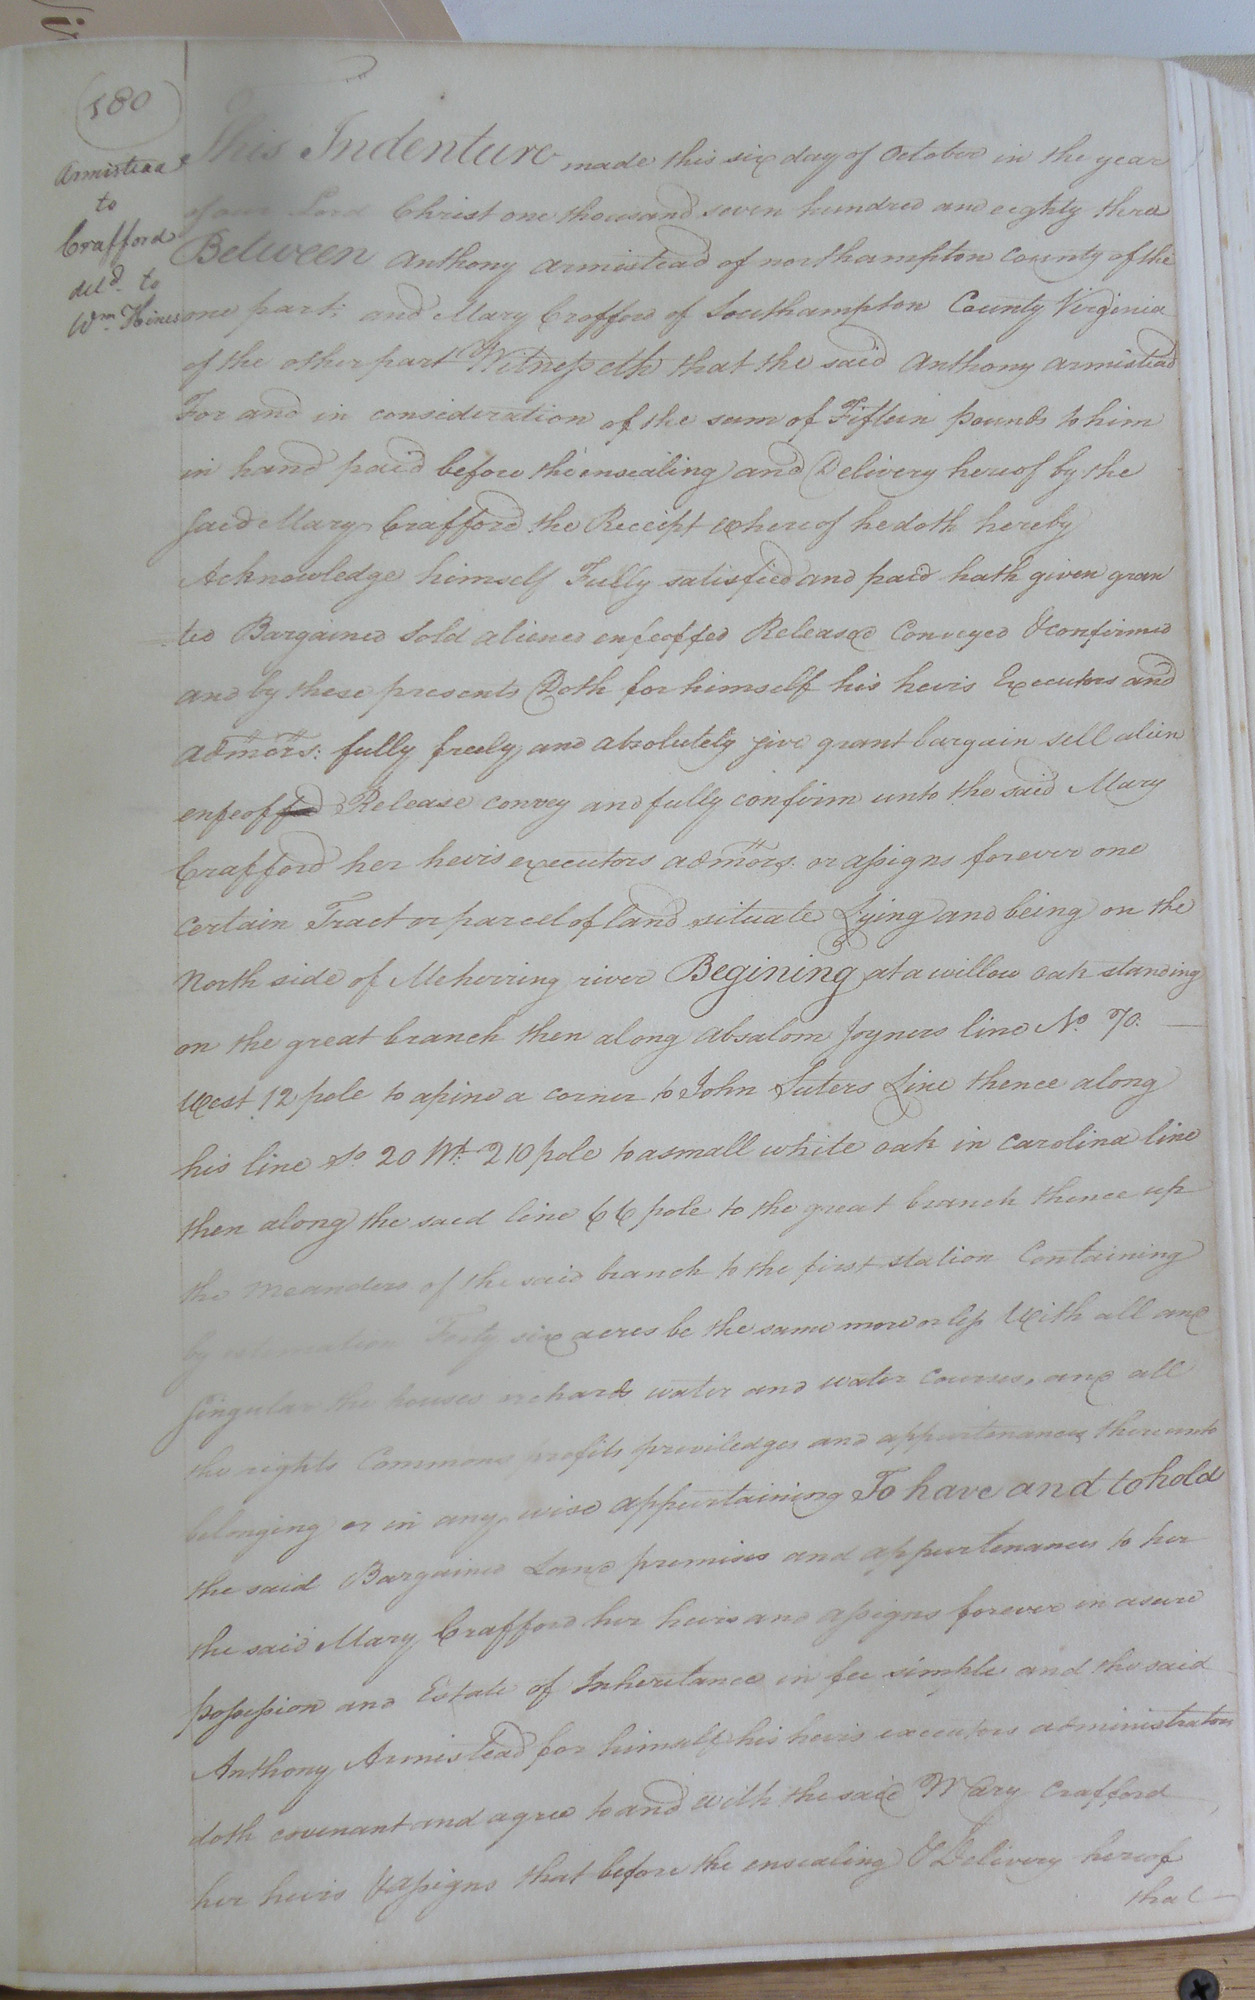 580
Armistead
to
Crafford
deld. to
Wm. Hines
This Indenture made this six day of October in the year
of our Lord Christ one thousand seven hundred and eighty three
Between Anthony Armistead of Northampton County of the
one part; and Mary Crafford of Southampton County Virginia
of the other part Witnesseth that the said Anthony Armistead
For and in consideration of the sum of Fifteen pounds to him
in hand paid before the ensealing and Delivery hereof by the
said Mary Crafford the Receipt whereof he doth hereby
Acknowledge himself Fully satisfied and paid hath given gran
ted Bargained Sold aliened enfeoffed Released Conveyed & confirmed
and by these presents Doth for himself his heirs Executors and
admors: fully freely and absolutely give grant bargain sell alien
enfeoffed Release convey and fully confirm unto the said Mary
Crafford her heirs executors admors. or assigns forever one
certain Tract or parcel of land situate Lying and being on the
North side of Meherring river Begining at a willow oak standing
on the great branch then along Absalom Joyners line No. 70.
West 12 pole to a pine a corner to John Suters Line thence along
his line So. 20 Wt. 210 pole to a small white oak in Carolina line
then along the said line 66 pole to the great branch thence up
the meanders of the said branch to the first station Containing
by estimation Forty six acres be the same more or less With all and
singular the houses orchards water and water courses, and all
the rights Commons profits priviledges and appurtenances thereunto
belonging or in any wise appurtaining To have and to hold
the said Bargained Land premises and appurtenances to her
the said Mary Crafford her heirs and assigns forever in a sure
possession and Estate of Inheritance in fee simple and the said
Anthony Armistead for himself his heirs executors administrators
doth covenant and agree to and with the said Mary Crafford
her heirs & assigns that before the ensealing & Delivery hereof
that